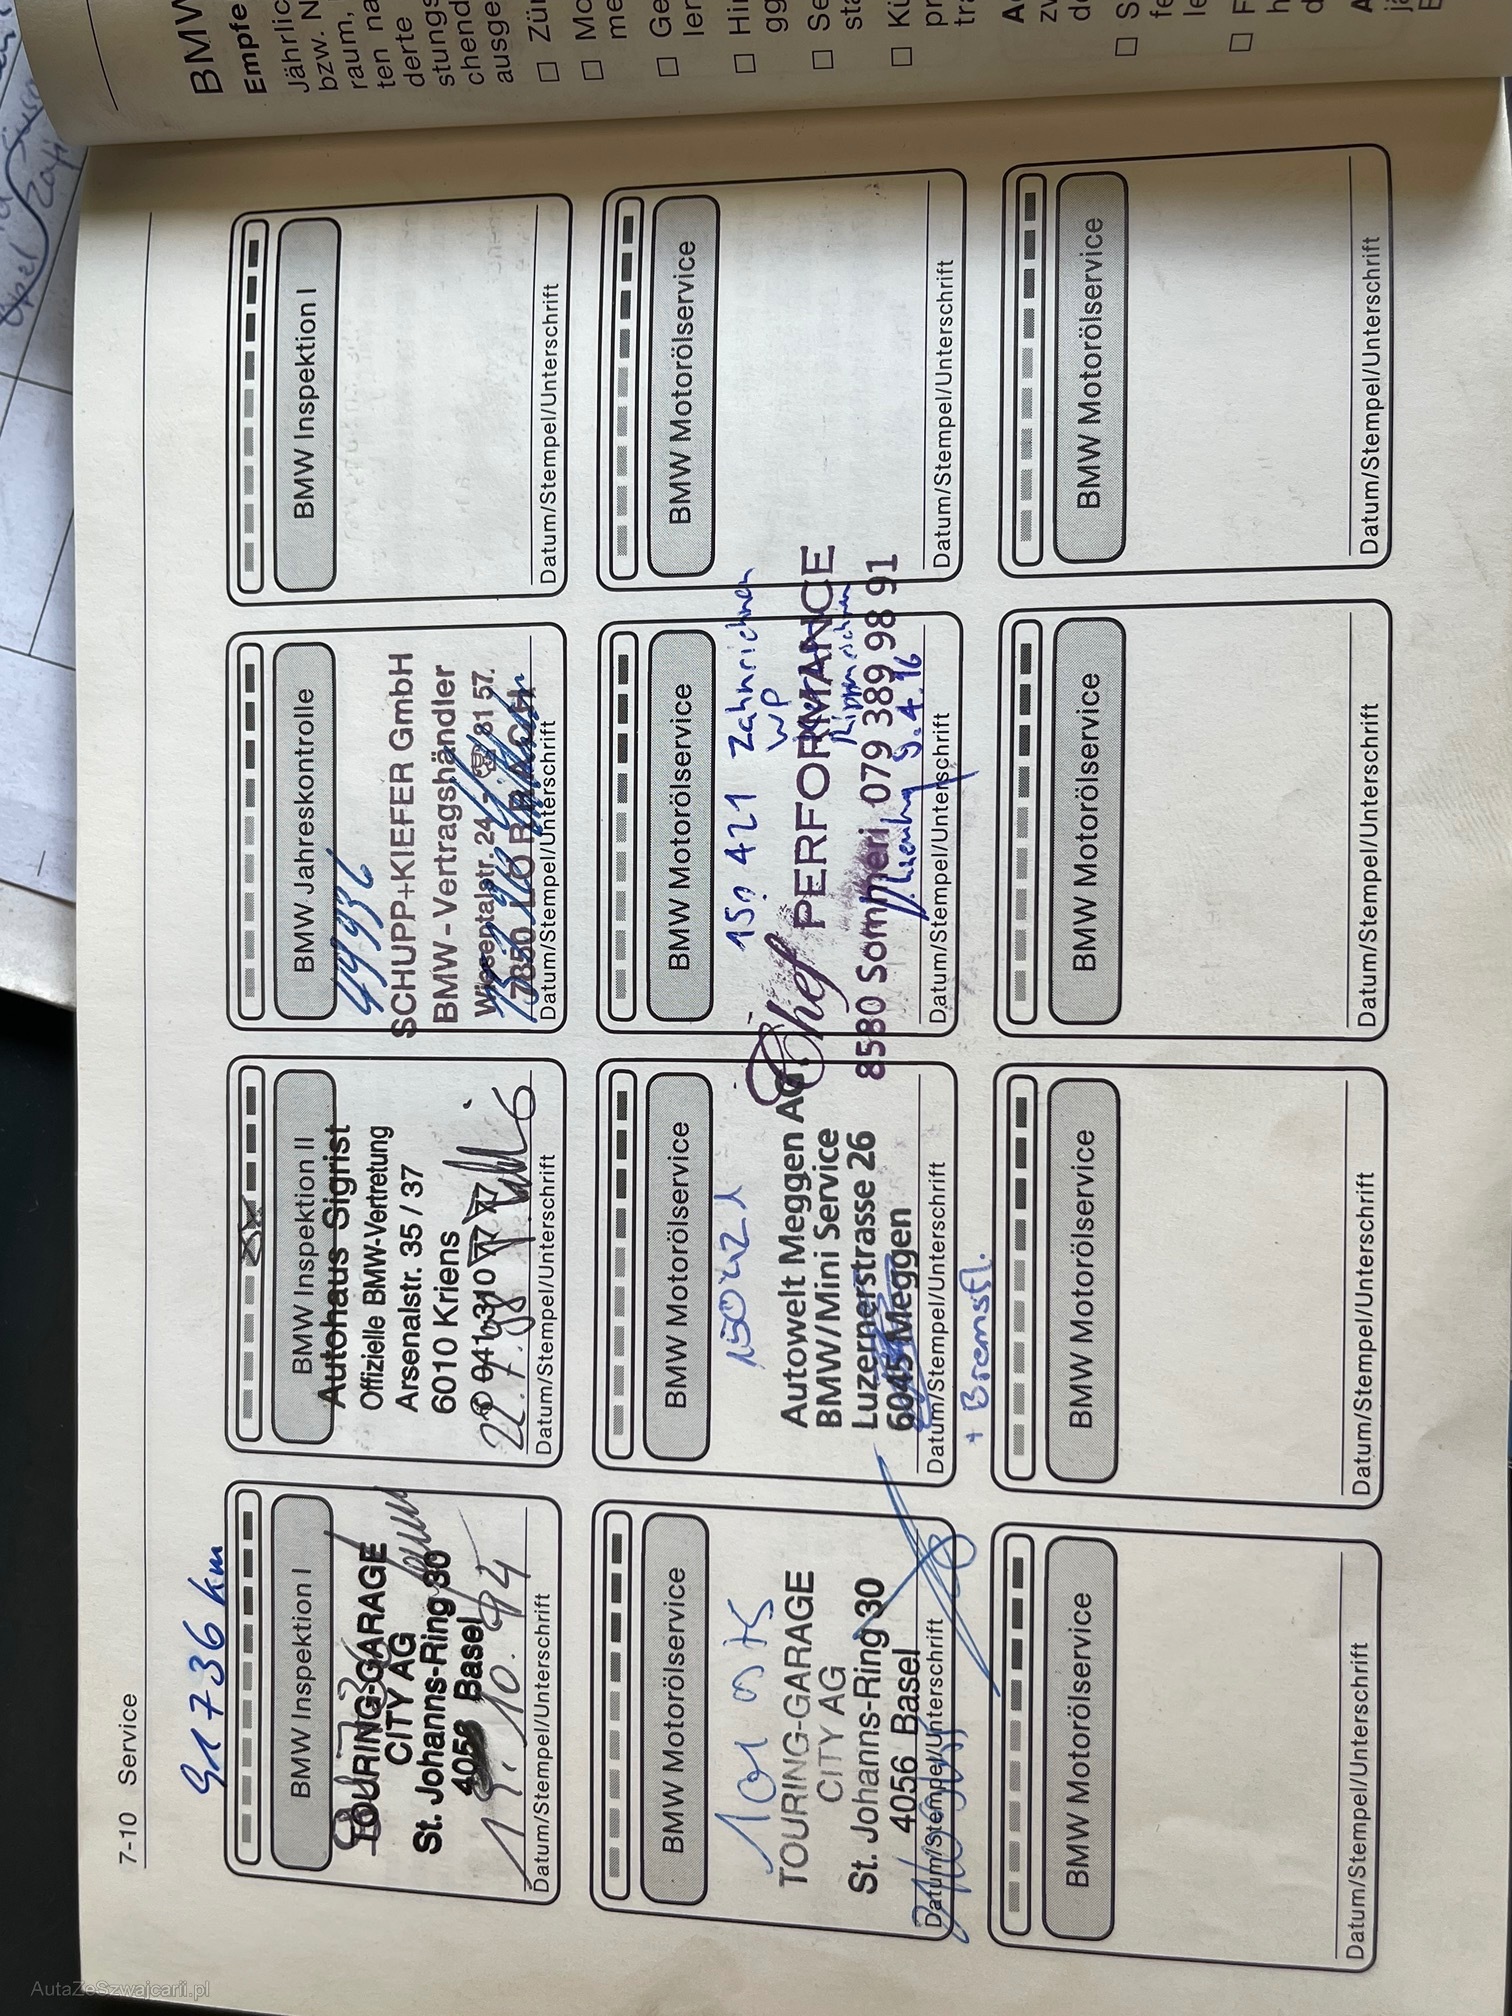 7-10 Service
91736 km
BMW Inspektion I
TOURING-GARAGE
CITY AG
St. Johanns-Ring 30
4056 Basel
19. 10. 94
Datum/Stempel/Unterschrift
BMW Inspektion II
Autohaus Sigrist
Offizielle BMW-Vertretung
Arsenalstr. 35 / 37
6010 Kriens
041-310 77 77
Datum/Stempel/Unterschrift
BMW Jahreskontrolle
SCHUPP+KIEFER GmbH
BMW-Vertragshändler
Wiesentalstr. 24 81 57
7850 LÖRRACH
Datum/Stempel/Unterschrift
BMW Inspektion I
Datum/Stempel/Unterschrift
BMW Motorölservice
TOURING-GARAGE
CITY AG
St. Johanns-Ring 30
4056 Basel
Datum/Stempel/Unterschrift
BMW Motorölservice
Autowelt Meggen AG
BMW/Mini Service
Luzernerstrasse 26
6045 Meggen
Datum/Stempel/Unterschrift
+ Bremsfl.
BMW Motorölservice
421 Zahnriemen
WP
Chef PERFORMANCE
8580 Sommeri 079 389 98 91
9.4.16
Datum/Stempel/Unterschrift
BMW Motorölservice
Datum/Stempel/Unterschrift
BMW Motorölservice
Datum/Stempel/Unterschrift
BMW Motorölservice
Datum/Stempel/Unterschrift
BMW Motorölservice
Datum/Stempel/Unterschrift
BMW Motorölservice
Datum/Stempel/Unterschrift
BMW
Empfe
Jährlic
bzw. N
raum,
ten na
derte
stungs
chend
ausge
□ Zür
□ Mo
me
□ Ge
ler
□ Hir
gg
□ Se
stä
□ Kü
pr
tra
AutaZeSzwajcarii.pl